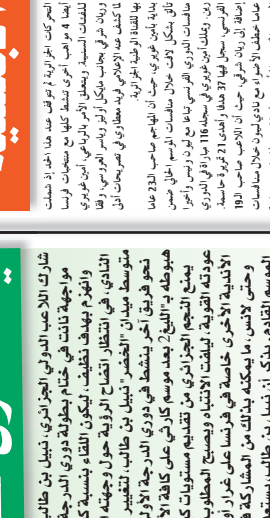 النحر كات الجزائرية لم تتوقف عند هذا الحد إذ شملت
أيضا 4 مواهب أخرى تنشط كلها مع منتخبات فرنسا
للفئات السنية، ويتعلق الأمر بالرباعي، أمين غويري
وريان شرقي بجانب مايكل أوليز وياسر العروسي، وفقا
لما كشف عنه الإعلامي فريد معطاوي في تصريحات أدلى
بها للقناة الجزائرية.
بداية بأمين غويري، حيث أن المهاجم صاحب الـ23 عاما
تألق بشكل لافت خلال منافسات الموسم الحالي ضمن
منافسات الدوري الفرنسي تباعا مع ليون ونيس وأخيرا
رين. ويملك أمين غويري في سجله 116 مباراة في الدوري
الفرنسي، سجل فيها 37 هدفا وأهدى 21 تمريرة حاسمة.
إضافة إلى ريان شرقي، حيث أن اللاعب صاحب الـ19
عاما خطف الأضواء مع نادي ليون خلال منافسات
شارك اللاعب الدولي الجزائري، نبيل بن طالب
مواجهة نانت في ختام بطولة دوري الدرجة
وانهزم بهدف نظيف، ليكون اللقاء بنسبة ك
النادي، في انتظار اتضاح الرؤية حول وجهته
متوسط ميدان "الخضر" نبيل بن طالب، لتغيير
نحو فريق آخر ينشط في دوري الدرجة الأولى
هبوطه بـ"الليغ2 بعد موسم كارثي على كافة الأ
يمنع النجم الجزائري من تقديم مستويات ك
عودته القوية، ليلفت الانتباه ويصبح المطلوب
الأندية الأخرى خاصة في فرنسا على غرار أو
وحتى لانس، ما يمكنه بذلك من المشاركة ف
الموسم القادم. يذكر أن نبيل بن طالب، يستم